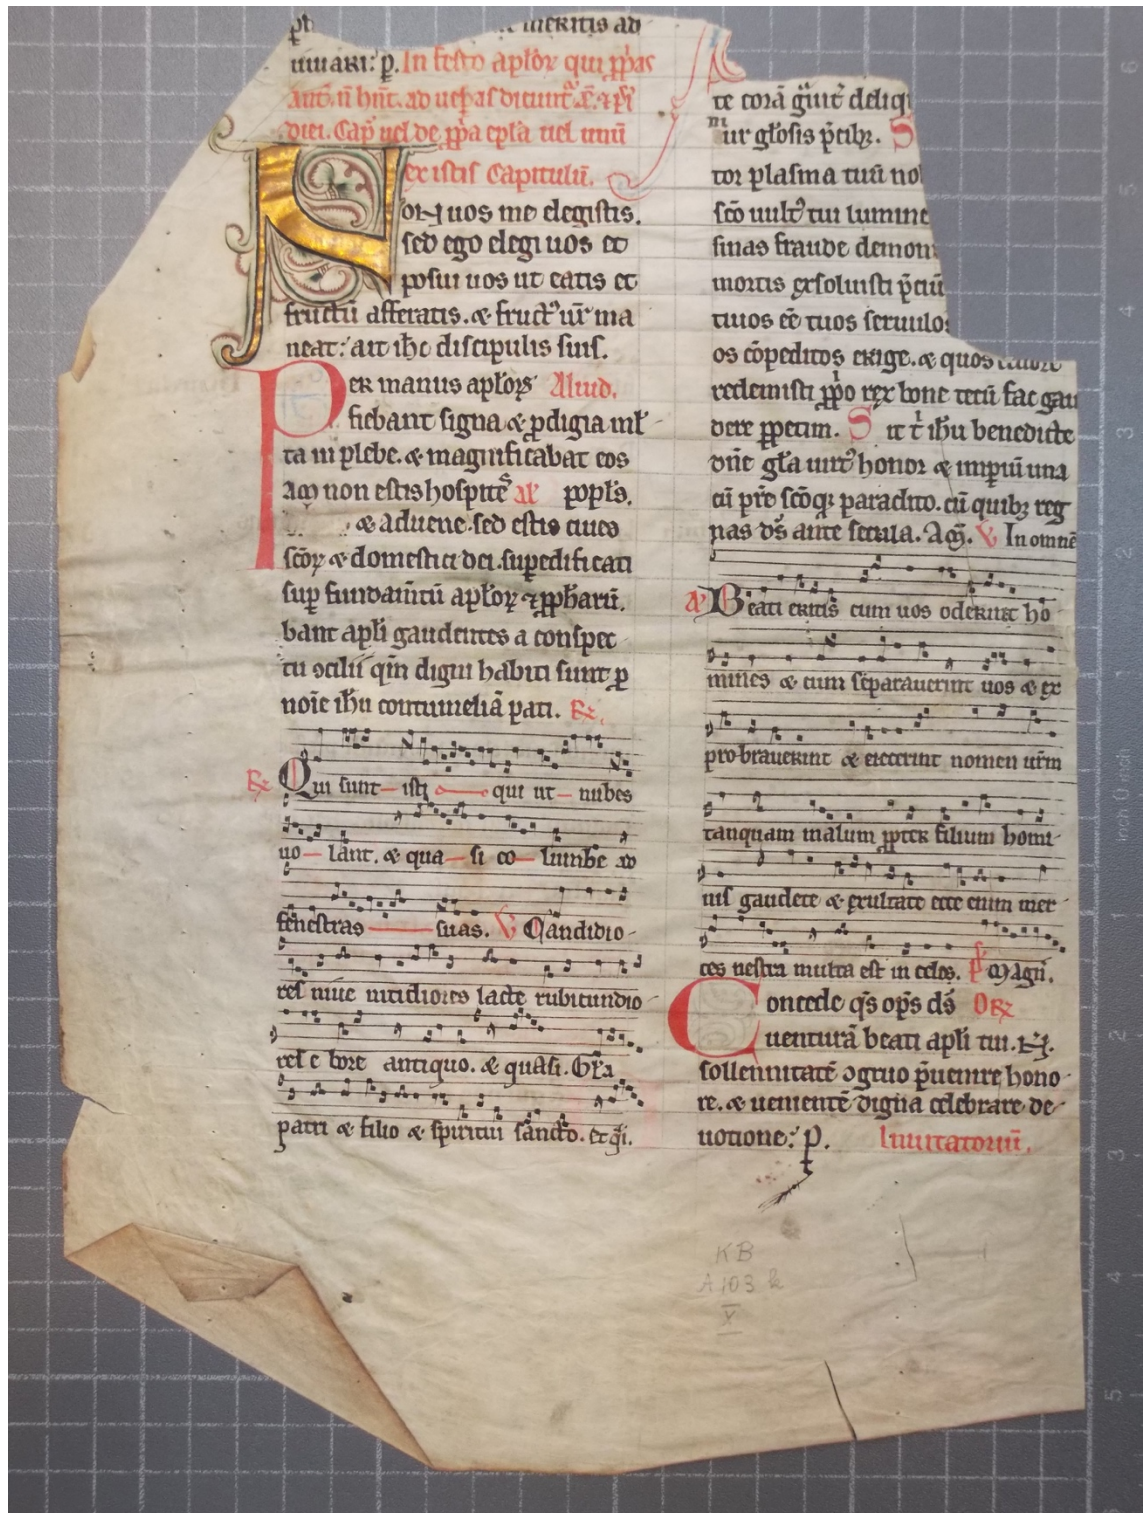 meritis ad
iuuari: p. In festo aplõꝝ qui ꝓp̃as
Ant. ñ hñt. ad uesp̃as dicunt̃
diei. Cap̃ uel de ꝓp̃a ep̃la uel unũ
ex istis Capitulũ.
NOn uos me elegistis.
sed ego elegi uos et
posui uos ut eatis et
fructũ afferatis. ⁊ fruct᷒ ur̃ ma
neat: ait ih̃c discipulis suis.
Per manus aplõꝝ Aliud.
fiebant signa ⁊ ꝓdigia ml̃
ta in plebe. ⁊ magnificabat eos
Iam non estis hospite᷒ al̃ popl̃s.
⁊ aduene. sed estis ciues
sc̃oꝝ ⁊ domestici dei. suꝑedificati
suꝑ fundam̃tũ aplõꝝ ⁊ ꝓph̃arũ.
bant apl̃i gaudentes a conspec
tu ↄcilii qm̃ digni habiti sunt ꝓ
noĩe ih̃u contumeliã pati. ℞.
℞ Qui sunt isti qui ut nubes
uolant. ⁊ quasi columbe ad
fenestras suas. ℣ Candidio
res niue nitidiores lacte rubicundio
res ebore antiquo. ⁊ quasi. Gl̃a
patri ⁊ filio ⁊ spiritui sancto. et q̃i.
te corã g̃uit̃ deliq
mur gl̃osis p̃cibꝫ. S
tor plasma tuũ no
sc̃o uult᷒ tui lumine
sinas fraude demon
mortis exsoluisti p̃ciũ
tiuos eẽ tuos seruulos
os cõpeditos erige. ⁊ quos
redemisti ꝓpo rex bone tecũ fac gau
dere ꝑpetim. Sit t̃ ih̃u benedicte
dñe gl̃a uirt᷒ honor ⁊ imperiũ una
cũ pr̃e sc̃oqꝫ paraclito. cũ quibꝫ reg
nas ds̃ ante secula. Am̃. ℣ In omnẽ
añ Beati eritis cum uos oderint ho
mines ⁊ cum separauerint uos ⁊ ex
probrauerint ⁊ eiecerint nomen ur̃m
tanquam malum ꝓpter filium homi
nis gaudete ⁊ exultate ecce enim mer
ces uestra multa est in celos. p̃s Magñ.
Concede q̃s op̃s ds̃ Or̃
uenturã beati apl̃i tui .N.
sollennitatẽ ↄgruo p̃uenire hono
re. ⁊ uenientẽ digna celebrare de
uotione: p. Inuitatoriũ.
KB
A 103 k
X